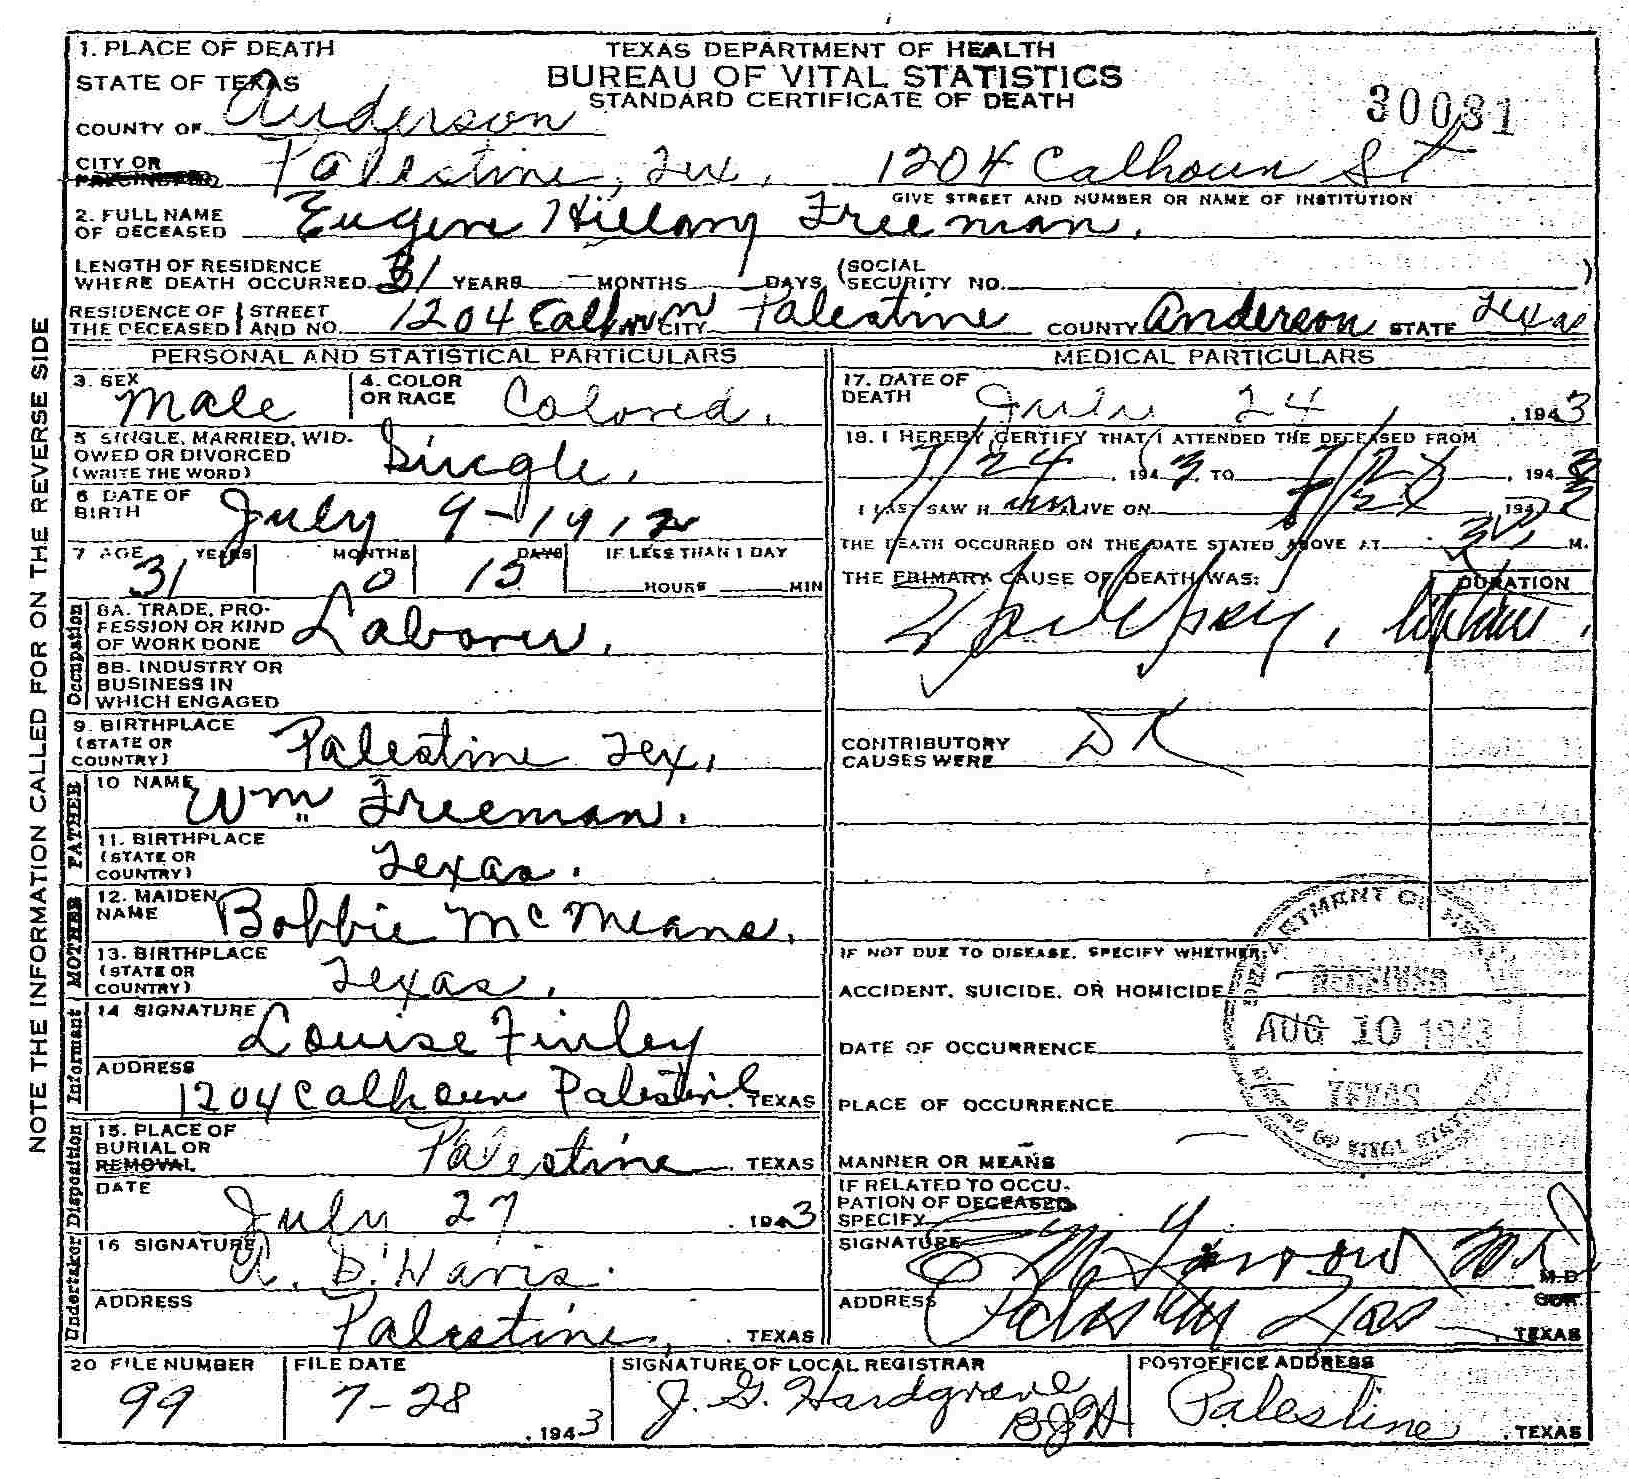 1. PLACE OF DEATH
STATE OF TEXAS
TEXAS DEPARTMENT OF HEALTH
BUREAU OF VITAL STATISTICS
STANDARD CERTIFICATE OF DEATH
30031
COUNTY OF Anderson
CITY OR PRECINCT NO. Palestine, Tex. 1204 Calhoun St
GIVE STREET AND NUMBER OR NAME OF INSTITUTION
2. FULL NAME OF DECEASED Eugene Hillary Freeman.
LENGTH OF RESIDENCE WHERE DEATH OCCURRED 31 YEARS — MONTHS DAYS (SOCIAL SECURITY NO. )
RESIDENCE OF THE DECEASED STREET AND NO. 1204 Calhoun CITY Palestine COUNTY Anderson STATE Texas
NOTE THE INFORMATION CALLED FOR ON THE REVERSE SIDE
PERSONAL AND STATISTICAL PARTICULARS
3. SEX Male
4. COLOR OR RACE Colored.
5 SINGLE, MARRIED, WIDOWED OR DIVORCED (WRITE THE WORD) Single.
6 DATE OF BIRTH July 9-1912
7 AGE 31 YEARS 0 MONTHS 15 DAYS IF LESS THAN 1 DAY HOURS MIN
Occupation
8A. TRADE, PROFESSION OR KIND OF WORK DONE Laborer.
8B. INDUSTRY OR BUSINESS IN WHICH ENGAGED
9. BIRTHPLACE (STATE OR COUNTRY) Palestine Tex.
FATHER
10 NAME Wm Freeman.
11. BIRTHPLACE (STATE OR COUNTRY) Texas.
MOTHER
12. MAIDEN NAME Bobbie McMeans.
13. BIRTHPLACE (STATE OR COUNTRY) Texas.
Informant
14 SIGNATURE Louise Finley
ADDRESS 1204 Calhoun Palestine. TEXAS
Disposition
15. PLACE OF BURIAL OR REMOVAL Palestine TEXAS
DATE July 27 . 1943
Undertaker
16 SIGNATURE A. D. Davis.
ADDRESS Palestine, . TEXAS
MEDICAL PARTICULARS
17. DATE OF DEATH July 24 , 1943
18. I HEREBY CERTIFY THAT I ATTENDED THE DECEASED FROM
7/24 . 1943 TO . 1943
I LAST SAW H im ALIVE ON 194
THE DEATH OCCURRED ON THE DATE STATED ABOVE AT M.
THE PRIMARY CAUSE OF DEATH WAS: DURATION
Epilepsy,
CONTRIBUTORY CAUSES WERE DK
IF NOT DUE TO DISEASE, SPECIFY WHETHER:
ACCIDENT, SUICIDE, OR HOMICIDE
DATE OF OCCURRENCE
PLACE OF OCCURRENCE
MANNER OR MEANS
IF RELATED TO OCCUPATION OF DECEASED SPECIFY
SIGNATURE M.D.
ADDRESS Palestine Texas . TEXAS
RECEIVED
AUG 10 1943
TEXAS
BUREAU OF VITAL STATISTICS
20 FILE NUMBER 99
FILE DATE 7-28 , 1943
SIGNATURE OF LOCAL REGISTRAR J. G. Hardgrave BJH
POSTOFFICE ADDRESS Palestine . TEXAS